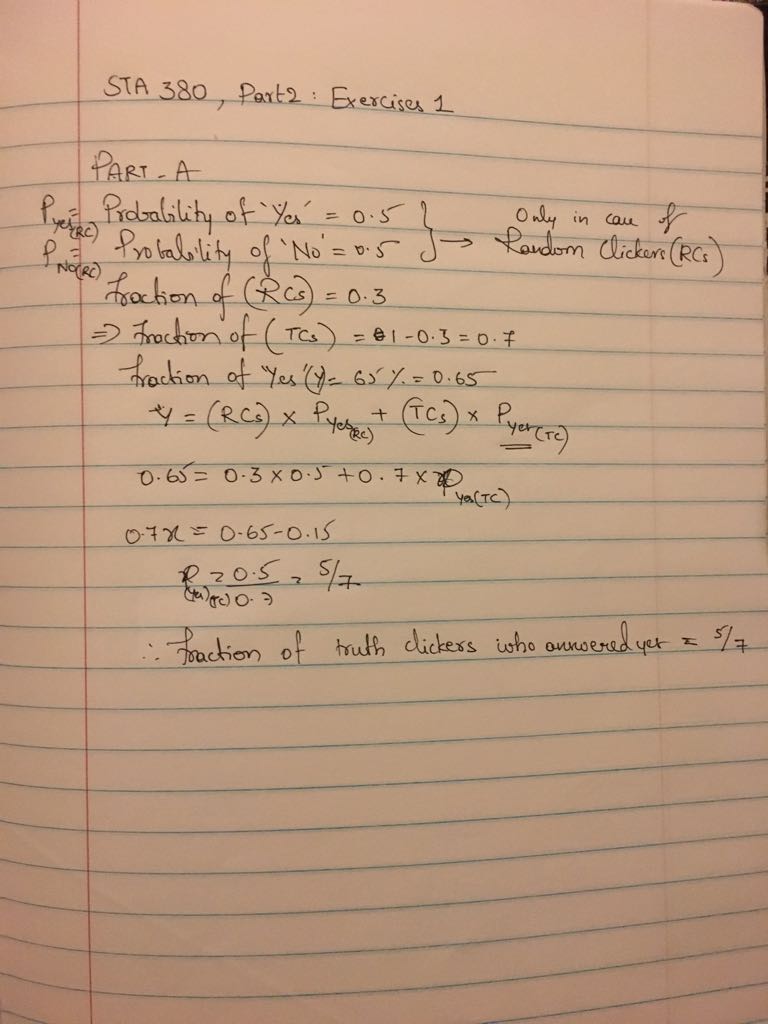 STA 380, Part2 : Exercises 1
PART - A
P Yes(RC) = Probability of 'Yes' = 0.5 } → Only in case of
P No(RC) = Probability of 'No' = 0.5 Random Clickers (RCs)
fraction of (RCs) = 0.3
⇒ fraction of (TCs) = 1-0.3 = 0.7
fraction of 'Yes'(Y) = 65 % = 0.65
Y = (RCs) × P yes(RC) + (TCs) × P yes(TC)
0.65 = 0.3 × 0.5 + 0.7 × P yes(TC)
0.7x = 0.65-0.15
P (Yes)(TC) = 0.5/0.7 = 5/7
∴ fraction of truth clickers who answered yes = 5/7